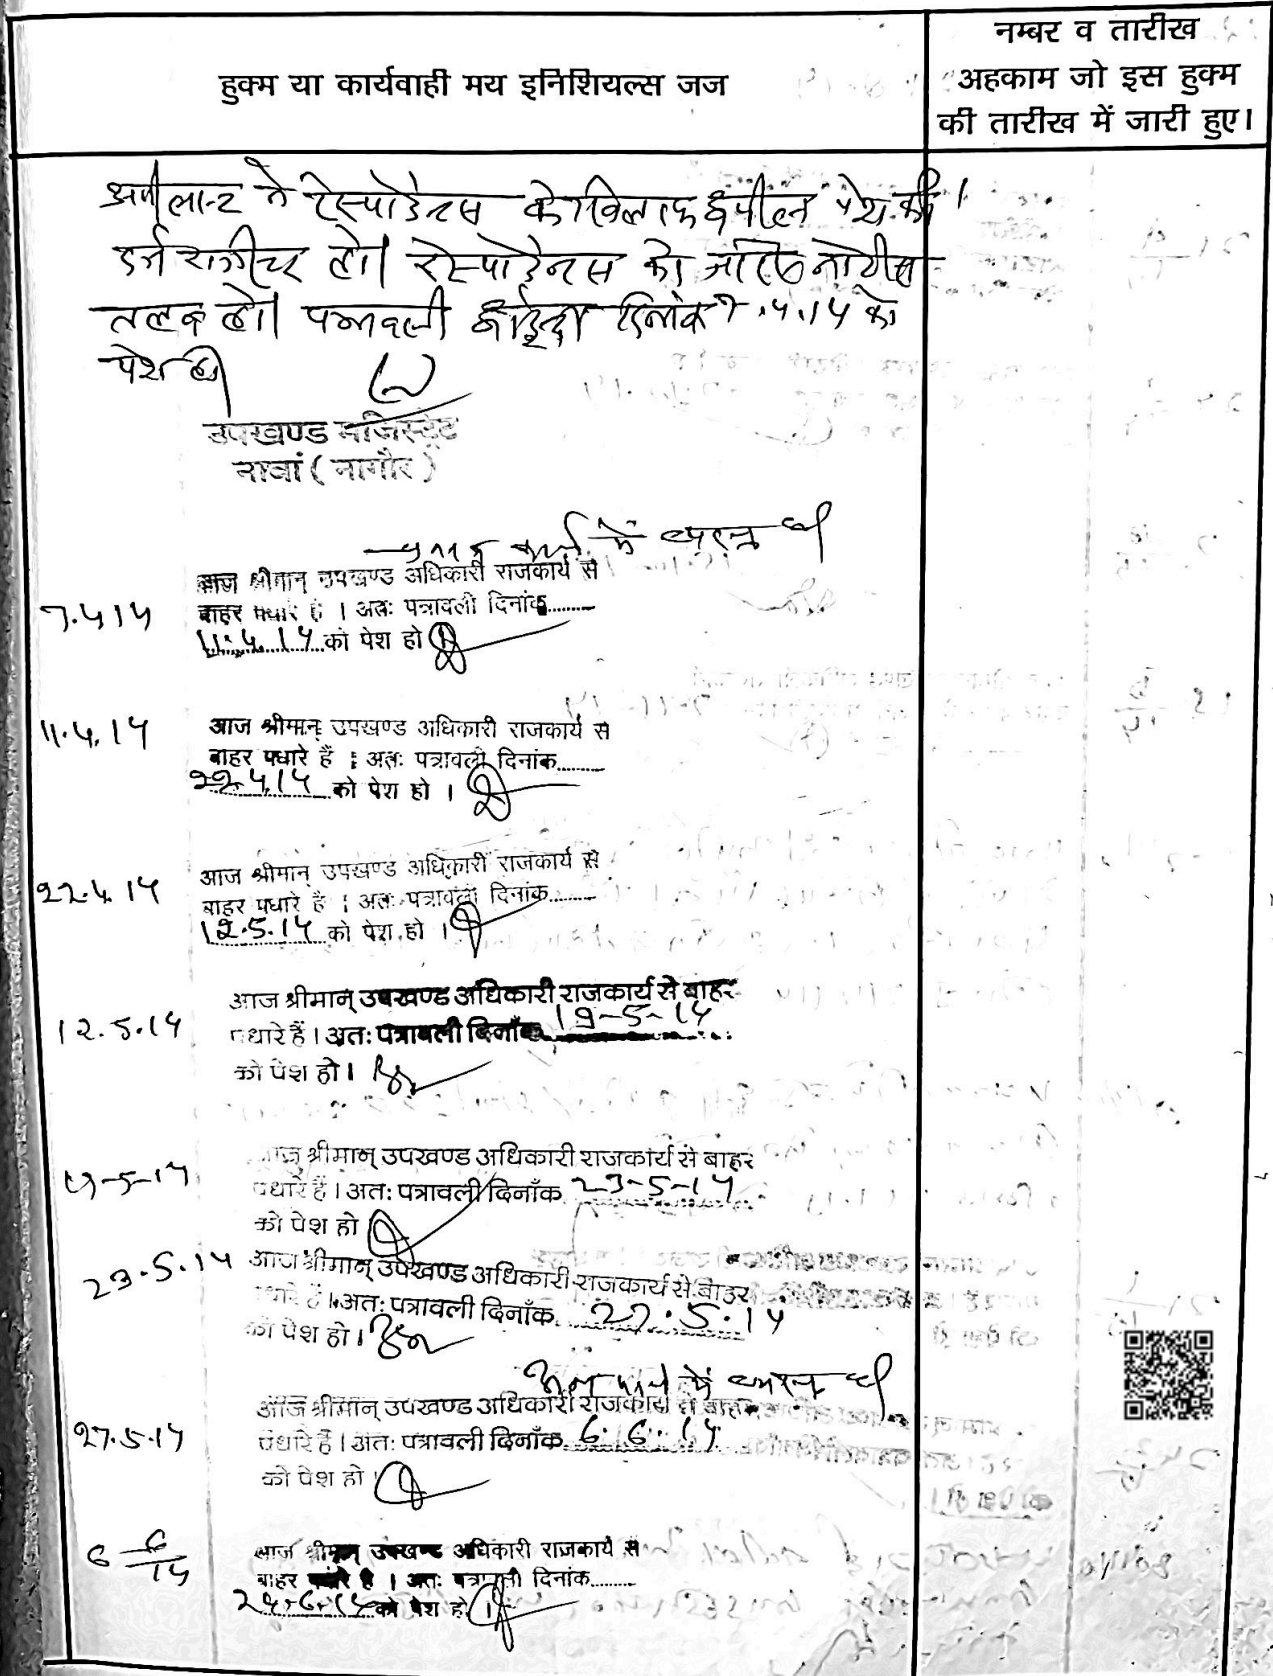 हुक्म या कार्यवाही मय इनिशियल्स जज
नम्बर व तारीख
अहकाम जो इस हुक्म
की तारीख में जारी हुए।
अपीलान्ट ने रेस्पोडेन्टस के खिलाफ अपील पेश की।
दर्ज रजीस्टर हो। रेस्पोडेन्टस को जरिए नोटीस
तलब हो। पत्रावली आईन्दा दिनांक 7.4.14 को
पेश हो।
उपखण्ड मजिस्ट्रेट
नावां (नागौर)
कार्य में व्यस्त थे
आज श्रीमान् उपखण्ड अधिकारी राजकार्य से
7.4.14 बाहर पधारे हैं । अतः पत्रावली दिनांक.........
11.4.14 को पेश हो
11.4.14 आज श्रीमान् उपखण्ड अधिकारी राजकार्य से
बाहर पधारे हैं । अतः पत्रावली दिनांक.........
22.4.14 को पेश हो ।
आज श्रीमान उपखण्ड अधिकारी राजकार्य से
22.4.14 बाहर पधारे है । अतः पत्रावली दिनांक.........
12.5.14 को पेश हो ।
आज श्रीमान् उपखण्ड अधिकारी राजकार्य से बाहर
12.5.14 पधारे हैं । अतः पत्रावली दिनाँक 19-5-14
को पेश हो ।
आज श्रीमान् उपखण्ड अधिकारी राजकार्य से बाहर
19-5-14 पधारे हैं । अतः पत्रावली दिनाँक 23-5-14
को पेश हो
23.5.14 आज श्रीमान् उपखण्ड अधिकारी राजकार्य से बाहर
पधारे हैं । अतः पत्रावली दिनाँक 27.5.14
को पेश हो ।
कार्य में व्यस्त थे
आज श्रीमान् उपखण्ड अधिकारी राजकार्य से बाहर
27.5.14 पधारे हैं । अतः पत्रावली दिनाँक 6.6.14
को पेश हो ।
6 6/14 आज श्रीमान उपखण्ड अधिकारी राजकार्य से
बाहर पधारे है । अतः पत्रावली दिनांक.........
24.6.14 को पेश हो ।